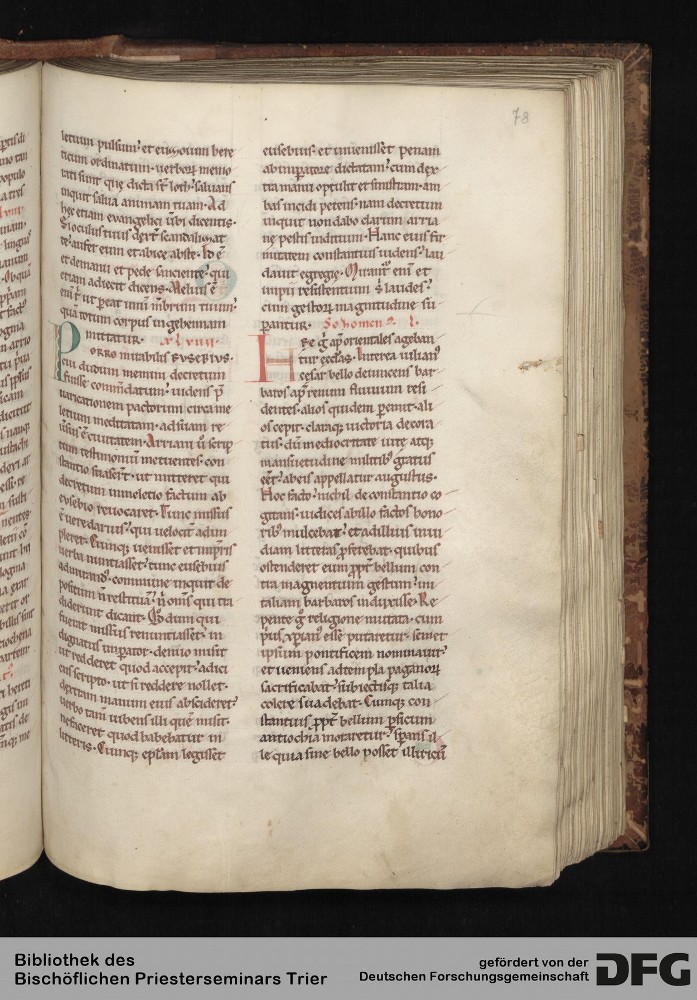 78
letium pulsum et eunomium bere
ticum ordinatum. verboꝝ memo
rati sunt que dicta st̄ loth. saluans
inquit salua animam tuam. Ad
hec etiam evangelici ūbi dicentis.
Si oculus tuus dext̄ scandalizat
te. aufer eum et abice abs te. Id ē
et de manu et pede sanciente. qui
etiam adiecit dicens. Melius ē
eni t̄ ut pereat unū mēbrum tuum.
quā totum corpus in gehennam
mittatur. xlviii.
PORRO mirabilis EVSEBIVS.
cui dudum memini decretum
fuisse commdatum. uidens p̄
uaricationem pactorum circa me
letium meditatam. ad suam re
uersus ē ciuitatem. Arriani ū scrip
tum testimonium metuentes. con
stantio suaserūt. ut mitteret qui
decretum in meletio factum ab
evsebio revocaret. Tunc missus
ē veredarius. qui velocit̄ adim
pleret. Cumq; uenisset et imp̄ris
verba nuntiasset. tunc eusebius
adunandū. commune inquit de
positum n̄ restituā. n̄ om̄s qui tra
diderunt dicant. Quod dum qui
fuerat missus renuntiasset. in
dignatus imp̄ator. denuo misit
ut redderet quod accepit. adici
ens scripto. ut si reddere nollet.
dextram manum eius abscideret.
verbo tam̄ iubens illi quē misit.
ne faceret quod habebatur in
litteris. Cumq; ep̄lam legisset
eusebius. et inuenisset penam
ab imp̄atore dictatam. cum dex
tra manu optulit et sinistram. am
bas incidi petens. nam decretum
inquit non dabo clarum arria
ne pestis indicium. Hanc eius fir
mitatem constantius uidens. lau
dauit egregie. Mirant̄ enī et
impii resistentium s. laudes.
cum gestoꝝ magnitudine su
perantur. Sozomen. l.
HEc g̊ ap̄ orientales ageban
tur ecclas. Interea iulian⁹
cesar bello deuincens bar
baros ap̄ renum fluuium resi
dentes. alios quidem p̄emit. ali
os cepit. claraq; uictoria decora
tus. dū mediocritate iure atq;
mansuetudine militib⁹ gratus
eēt. ab eis appellatur augustus.
Hoc facto. nichil de constantio co
gitans. iudices ab illo factos hono
rib⁹ mulcebat. et ad illius inui
diam litteras proferebat. quibus
ostenderet eum ppt̄ bellum con
tra magnentium gestum. in
italiam barbaros induxisse. Re
pente g̊ religione mutata. cum
p̄us xp̄ian⁹ esse putaretur. semet
ipsum pontificem nominauit
et ueniens ad templa paganoꝝ
sacrificabat. subiectisq; talia
colere suadebat. Cumq; con
stantius ppt̄ bellum persicum
antiochia moraretur. sperans il
le quia sine bello posset illiricū
Bibliothek des
Bischöflichen Priesterseminars Trier
gefördert von der
Deutschen Forschungsgemeinschaft
DFG